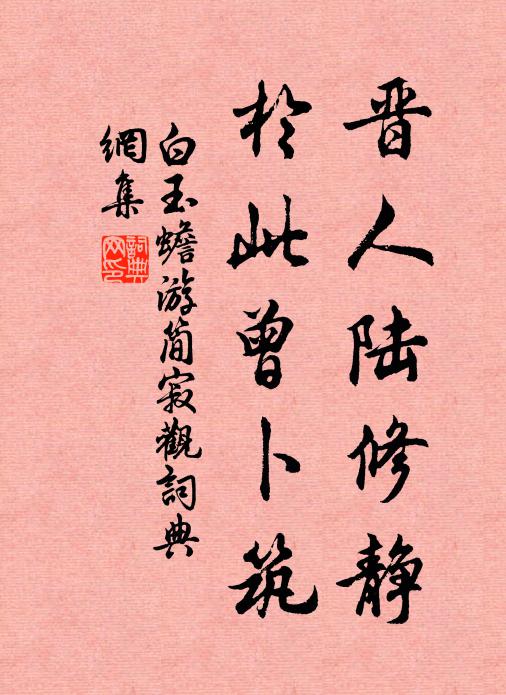 晋人陆修静
於此曾卜筑
白玉蟾游简寂觀詞典
網集
詞典
网印